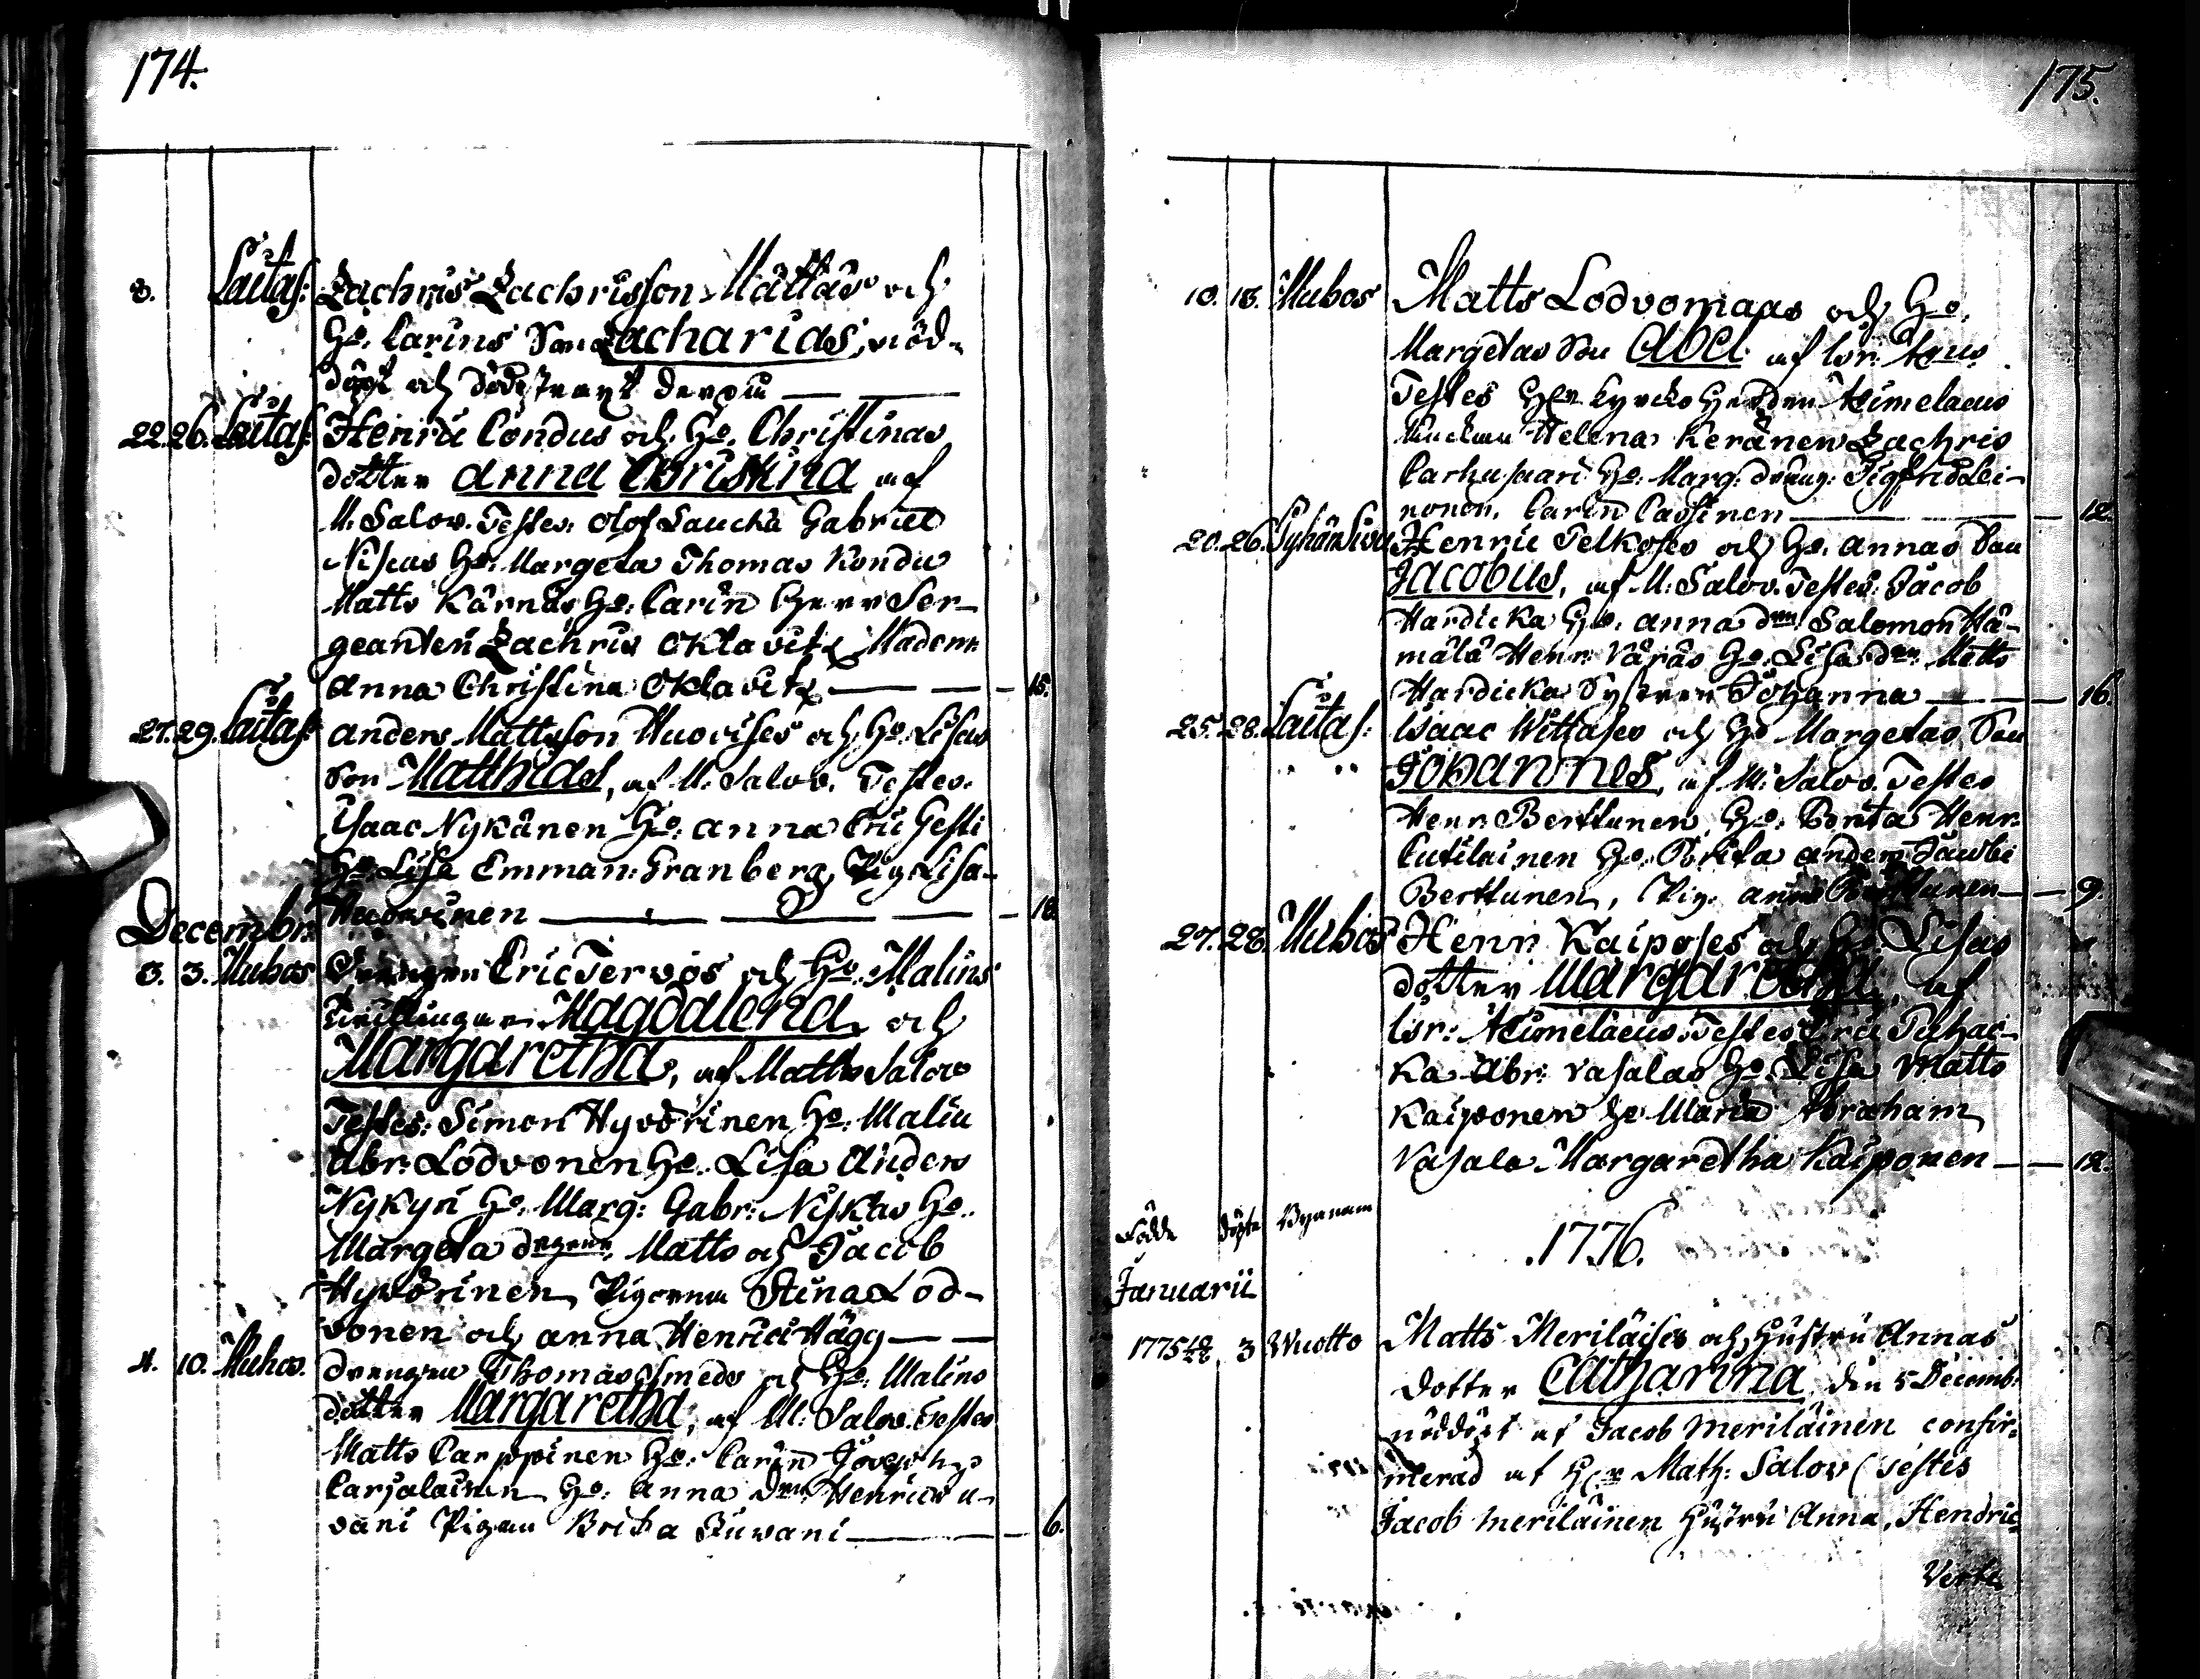 174.
3. Laitas: Zachris Zachrisson Mattas och
Ho. Carins Son Zacharias, nöd-
döpt och
22. 26. Laitas: Henric Condus och Ho. Christinas
dotter Anna Christina af
M. Salov. Testes: Olof Laucka Gabriel
Niskas Ho: Margeta Thomas Kondu
Matts Kärnäs Ho: Carin Herr Ser-
geanten Zachris Oktavitz Madem:
Anna Christina Oktavitz — — — 15.
27. 29. Laitas: Anders Mattsson Huovises och Ho. Lisas
Son Matthias, af M. Salov. Testes.
Isaac Nykänen Ho: Anna Eric Gesti
Ho: Lisa Emman: Granberg, Pig. Lisa
Huovinen — — — 10.
Decembr:
3. 3. Muhos Drengen Eric Tervos och Ho. Malins
Magdalena och
Margaretha, af Matths Salov
Testes: Simon Hyvörinen Ho: Malin
Abr: Lodvonen Ho. Lisa Anders
Nykyri Ho. Marg: Gabr: Niskas Ho.
Margeta Matts och Jacob
Hyvörinen, Pigorna Stina Lod-
vonen och Anna Henrici Hägg — —
4. 10. Muhos. Drengen Thomas Smeds och Ho: Malins
dotter Margaretha, af M: Salov. Testes
Matts Carppinen Ho: Carin
Carjalainen Ho: Anna Henric
vani Pigan Brita Juvani — — 6.
175.
10. 18. Muhos Matts Lodvomaas och Ho.
Margetas Son Abel af
Testes Herr Kyrcko Herden Aeimelaeus
Helena Keränen Zachris
Carhusaari Ho: Marg: dräng: Sigfrid Lei-
nonen, Carin Cassinen — — 12.
20. 26. Henric Telkoses och Ho. Annas Son
Jacobus, af M: Salov. Testes: Jacob
Hardicka Ho. Anna Salomon Hä-
mälä Henr: Väräs Ho: Lisa Matts
Hardicka Systren Johanna — — 16.
25. 28. Laitas: Isaac Wittases och Ho Margetas Son
Johannes, af M: Salov. Testes
Henr: Berttunen, Ho: Brita Henr:
Cutilainen Ho. Brita Anders
Berttunen, Pig. Anna Berttunen — — 9.
27. 28. Muhos Henr: Kaiposes och Ho Lisas
dotter Margaretha, af
Aeimelaeus. Testes Eric
ka Abr: Vasalas Ho. Lisa Matts
Kaiponen Ho Maria Abraham
Vasala Margaretha Kaiponen — — 12.
Födde döpte Bynamn
1776.
Januarii
1775 3 Wuotto Matts Meriläises och Hustru Annas
dotter Catharina, den 5 Decemb:
nöddöpt af Jacob Meriläinen confir-
merad af Math: Salov (Testes
Jacob Meriläinen Hustru Anna, Hendric
Verte